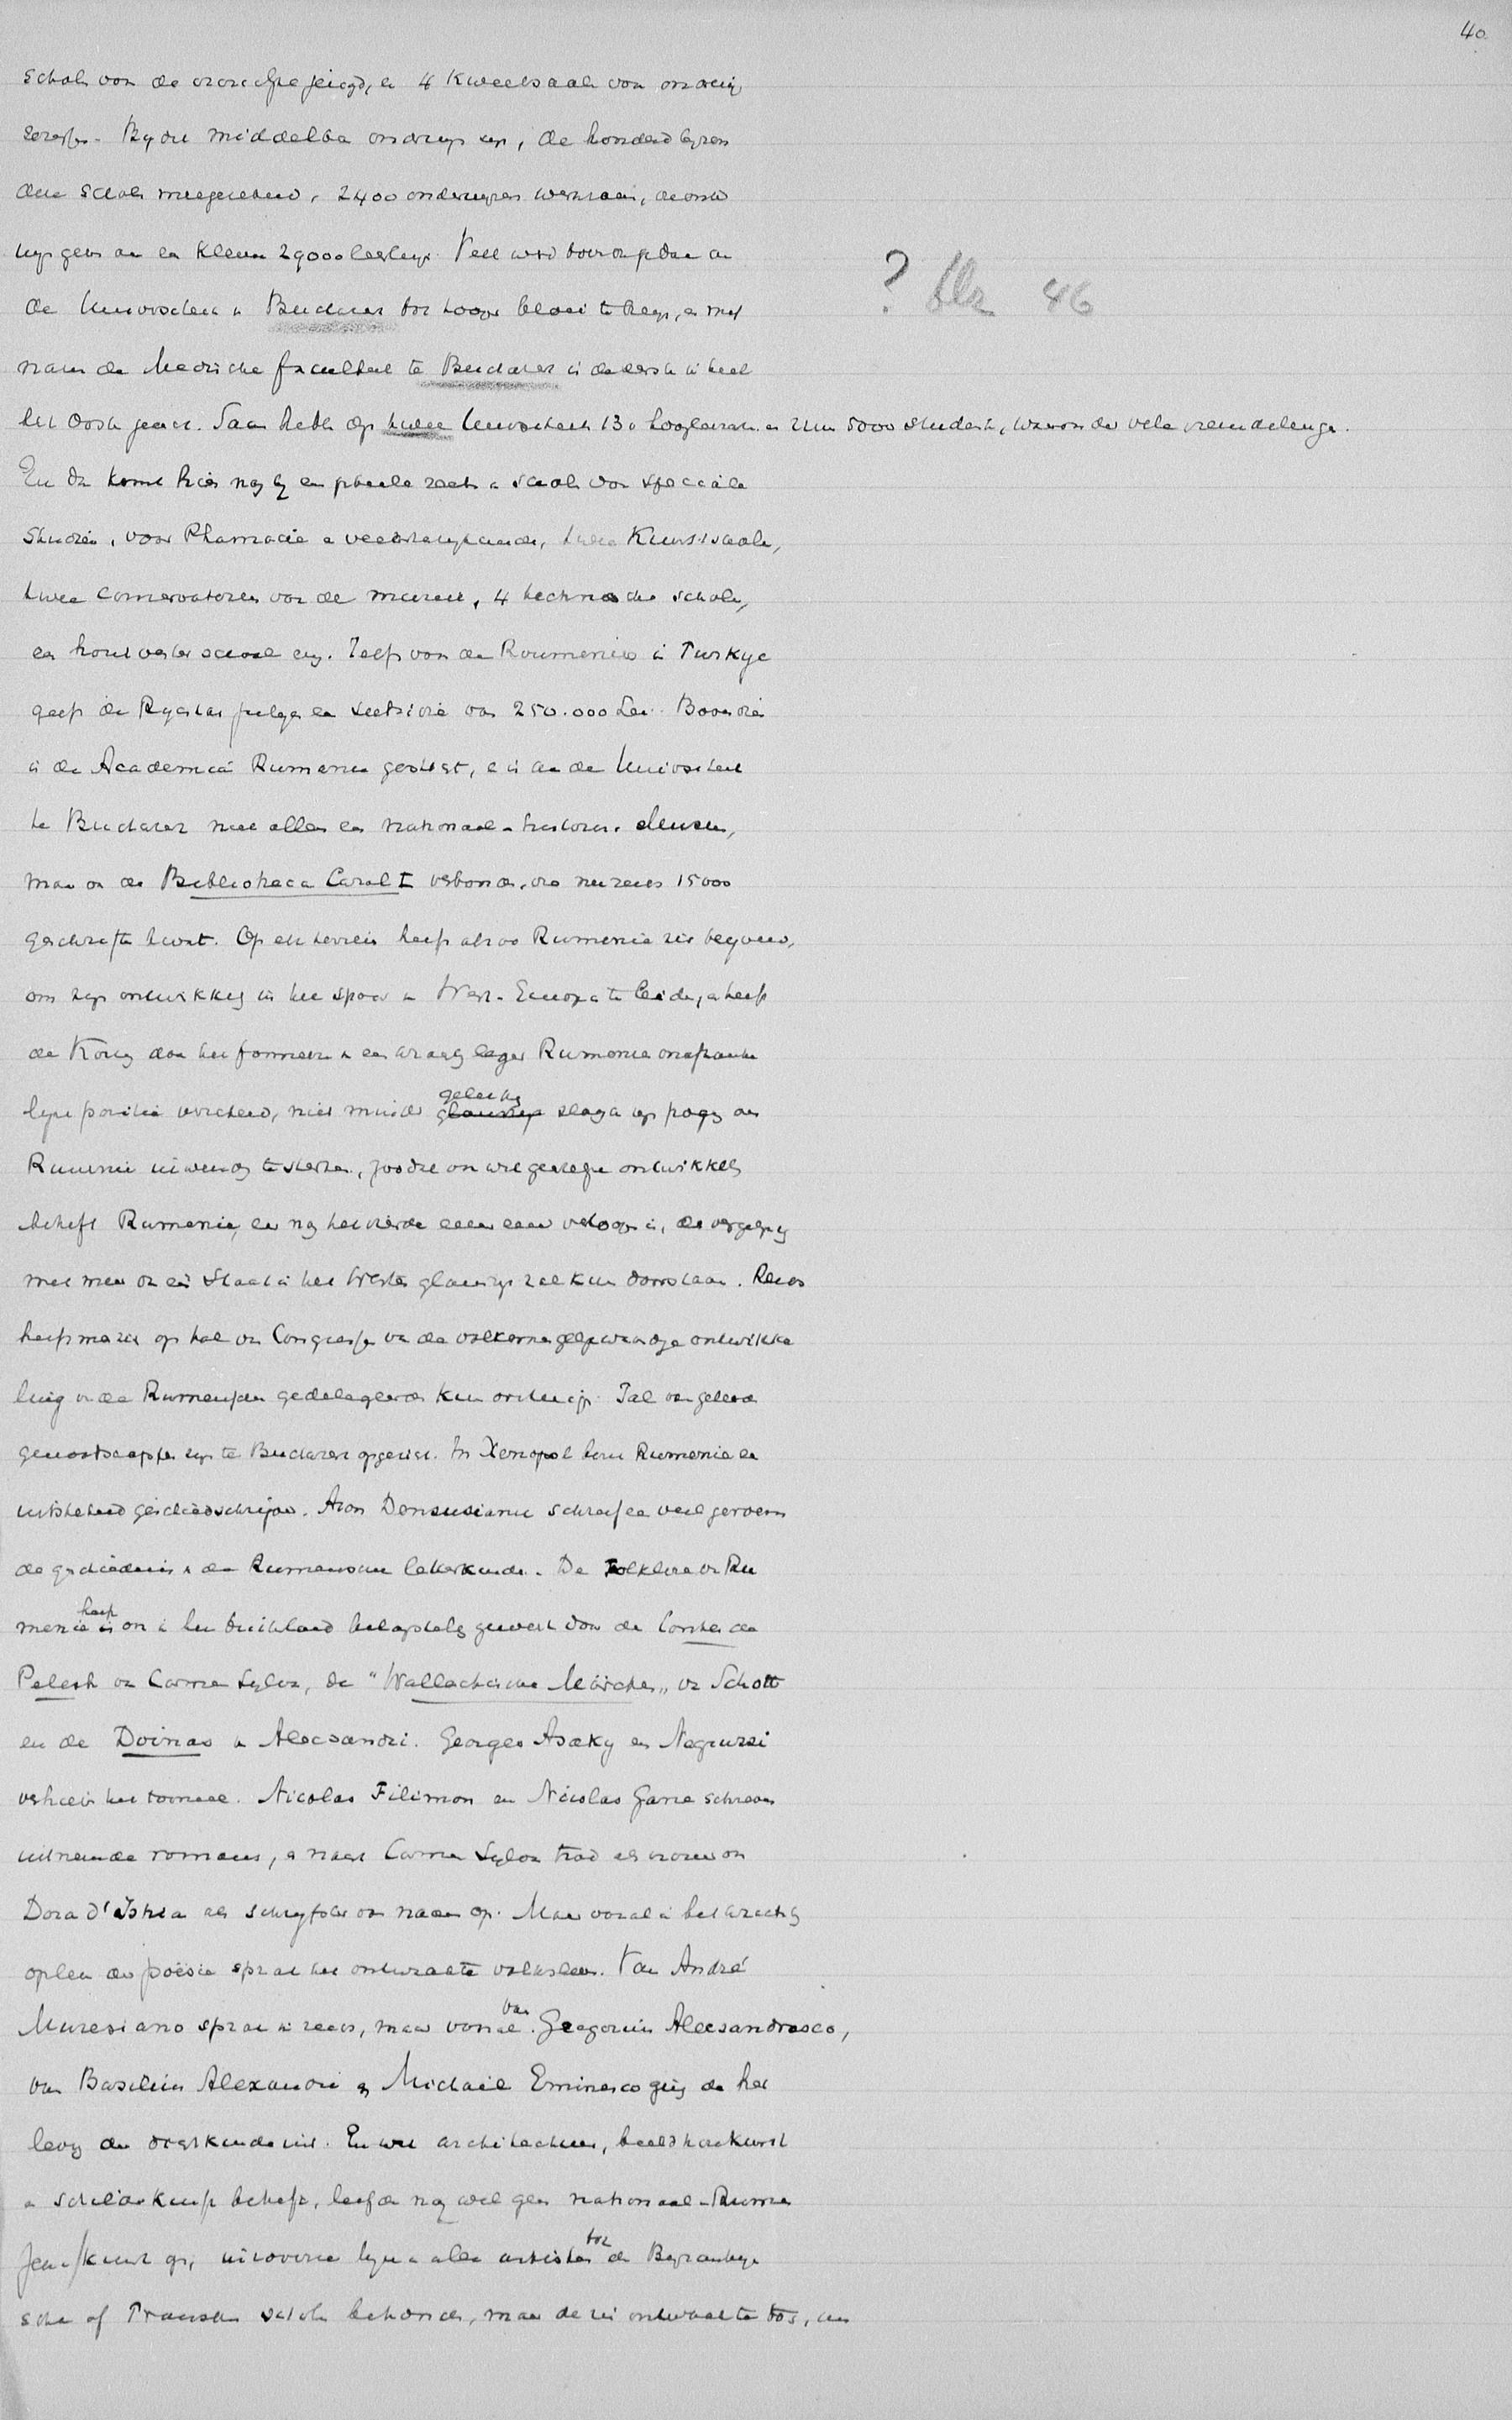 40
scholen voor de vrouwelijke jeugd, en 4 kweekscholen voor onderwij
zeressen. By dit middelbaar onderwys zyn, de
scholen meegerekend, 2400 onderwyzers werkzaam, die onder
wys geven aan een kleine 29000 leerlingen. Veel werd voorts gedaan om
? blz 46
de Universiteit in Bucharest tot hooge bloei te brengen, en met
name de Medische faculteit te Bucharest is de eerste in heel
het Oosten geworden. Saam hebben op twee Universiteiten 130 hoogleeraren en ruim 5000 studenten, waaronder vele vreemdelingen.
En dan komt hier nog by een geheele reeks van scholen voor speciale
studiën, voor Pharmacie en veeartsenykunde, twee Kunstscholen,
twee Conservatoren voor de muziek, 4 technische scholen,
een houtvesterschool enz. Zelfs voor de Roumeniers in Turkye
geeft de Rykskas jaarlyks een subsidie van 250.000 Lei. Bovendien
is de Academia Rumania gesticht, en is aan de Universiteit
te Bucharest niet alleen een nationaal-historisch Museum,
maar ook de Bibliotheca Carol I verbonden, die nu reeds 15000
geschriften bezit. Op elk terrein heeft alzoo Rumenie zich beyverd,
om zyn ontwikkeling in het spoor van West-Europa te leiden, en heeft
de Koning door het formeeren van een krachtig leger Rumenie onafhanke
lyke positie verzekerd, niet minder gelukkig slaagde zyn poging om
Rumenie inwendig te sterken, zoodat ook wat geestelyke ontwikkeling
betreft Rumenie, eer nog het vierde eener eeuw verloopen is, de vergelyking
met meer dan een Staat in het Westen glansryk zal kunnen doorstaan. Reeds
heeft men zich op tal van Congressen van de volkomen gelykwaardige ontwikke
ling van de Rumenische gedelegeerden kunnen overtuigen. Tal van geleerde
genootschappen zyn te Bucharest opgericht. In Xenopol bezit Rumenie een
uitstekend geschiedschrijver. Aron Densusianu schreef een veel geroem
de geschiedenis van de Rumeensche letterkunde. De Folklore van Ru
menie heeft ook in het buitenland belangstelling gewekt door de Contes de
Pelesh van Carmen Sylva, de "Wallachische Märchen" van Schott
en de Doinas van Alecsandri. Georges Asaky en Negruzzi
verhieven het tooneel. Nicolas Filimon en Nicolas Gane schreven
uitnemende romans, en naast Carmen Sylva trad als vrouw ook
Dora d'Istria als schryfster van naam op. Maar vooral in het krachtig
opleven der poësie sprak het ontwaakte volksleven. Van André
Muresiano sprak ik reeds, maar vooral van Gregorius Alecsandresco,
van Basilius Alexandri en Michael Eminesco ging de her
leving der dichtkunde uit. En wat architectuur, beeldhouwkunst
en schilderkunst betreft, leefde nog wel geen nationaal-Rume
kunst op, alle artisten tot de Byzantyn
sche of Fransche school behoorden, maar de zin ontwaakte toch, en